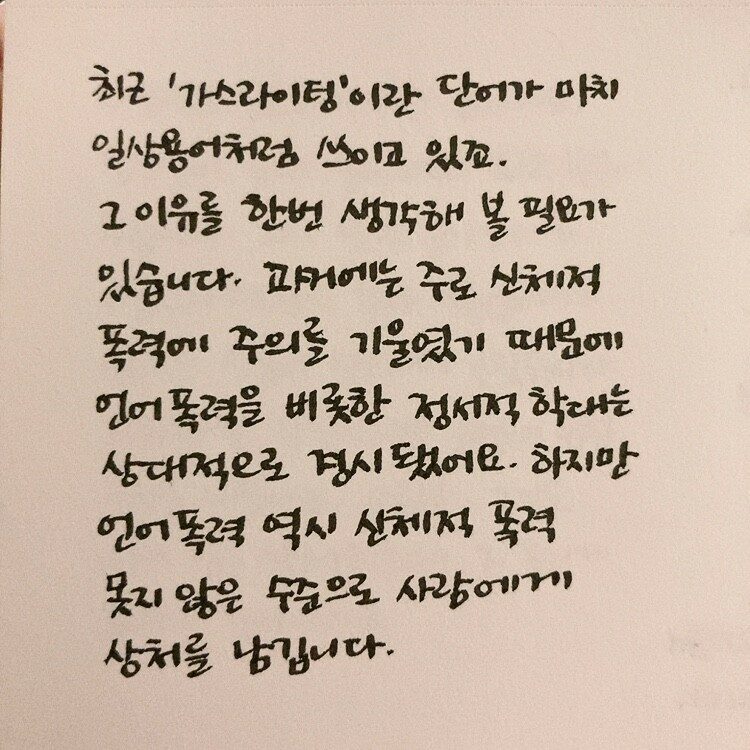 최근 '가스라이팅'이란 단어가 마치
일상용어처럼 쓰이고 있죠.
그 이유를 한번 생각해 볼 필요가
있습니다. 과거에는 주로 신체적
폭력에 주의를 기울였기 때문에
언어폭력을 비롯한 정서적 학대는
상대적으로 경시됐어요. 하지만
언어폭력 역시 신체적 폭력
못지 않은 수준으로 사람에게
상처를 남깁니다.